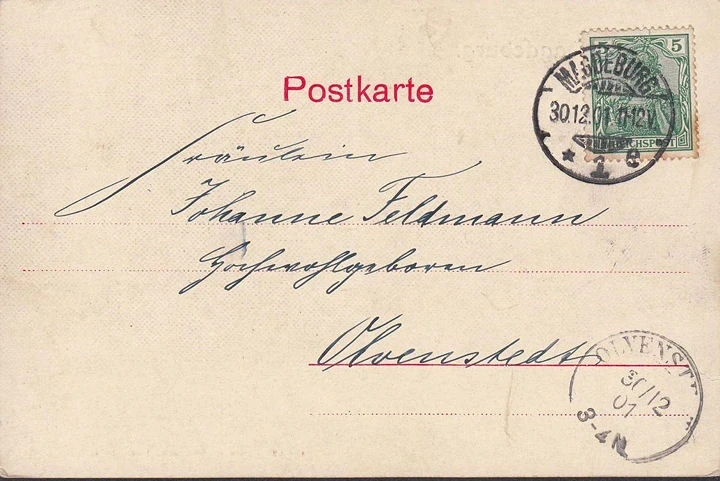 5
REICHSPOST
MAGDEBURG
30.12.01 11-12V
* 1 c
Postkarte
Fräulein
Johanne Feldmann
Hochwohlgeboren
Olvenstedt
OLVENST
30/12
01
3-4N